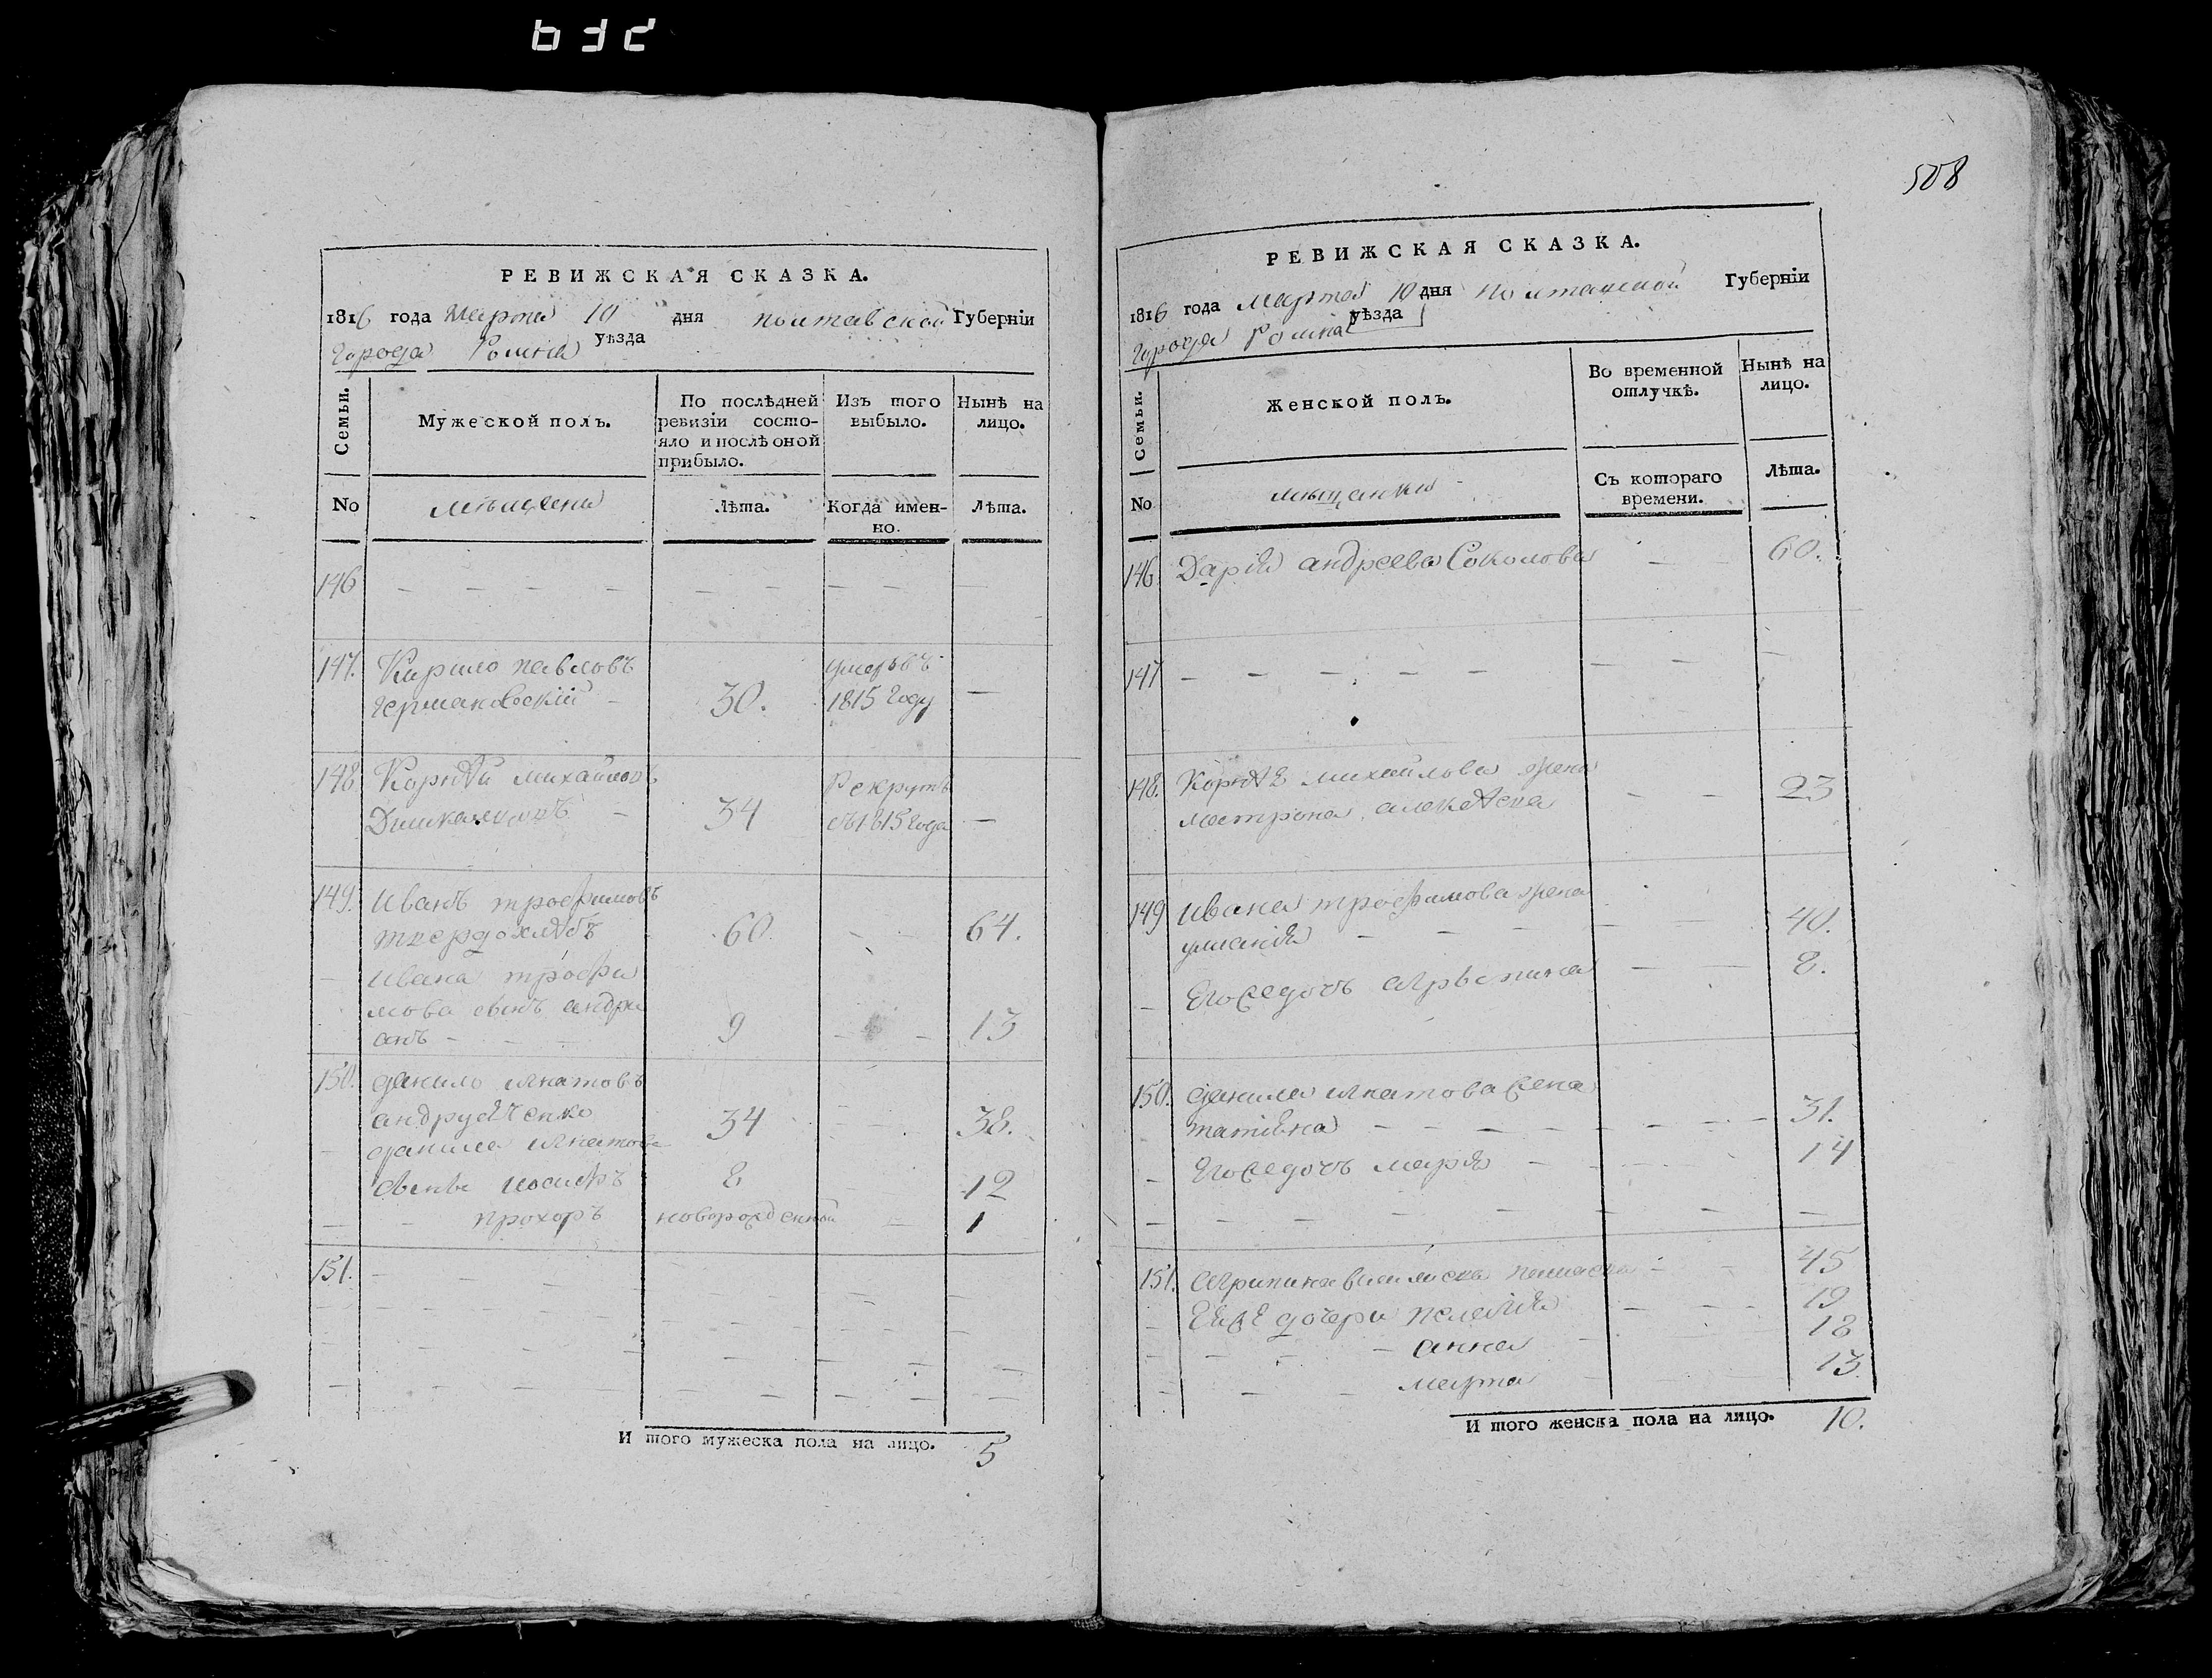 РЕВИЖСКАЯ СКАЗКА.
1816 года Марта 10 дня полтавской Губерніи
города Ромна уѣзда
Семьи.
Мужеской полъ.
По послѣдней ревизіи состо-
яло и послѣ оной
прибыло.
Изъ того
выбыло.
Нынѣ на
лицо.
No
мѣщане
Лѣта.
Когда имен-
но.
Лѣта.
146
147. Кирило павловъ
умеръ въ
30. 1815 году —
148 Корнѣй михайловъ
рекрутъ
34 съ 1815 года —
149. Иванъ трофимовъ
твердохлѣбъ 60. 64.
Ивана трофи
мова сынъ андри
анъ 9 13
150. данило игнатовъ
андрущенко 34 38.
данила игнатова
сыны иосифъ 8 12
прохоръ новорожденной 1
151.
И того мужеска пола на лицо. 5
508
РЕВИЖСКАЯ СКАЗКА.
1816 года марта 10 дня полтавской Губерніи
города Ромна уѣзда
Семьи.
Женской полъ.
Во временной
отлучкѣ.
Нынѣ на
лицо.
No
мещанки
Съ котораго
времени.
Лѣта.
146. Дарія андреева Соколова 60.
147
148. Корнѣя михайлова жена
матрона алексѣева 23
149 Ивана трофимова жена
уліанія 40.
Его же дочь агрыпина 8.
150. данила игнатова жена
татіана 31.
Его же дочь марія 14
151. агрипина 45
Ея же дочери пелагія 19
анна 18
марта 13.
И того женска пола на лицо. 10.